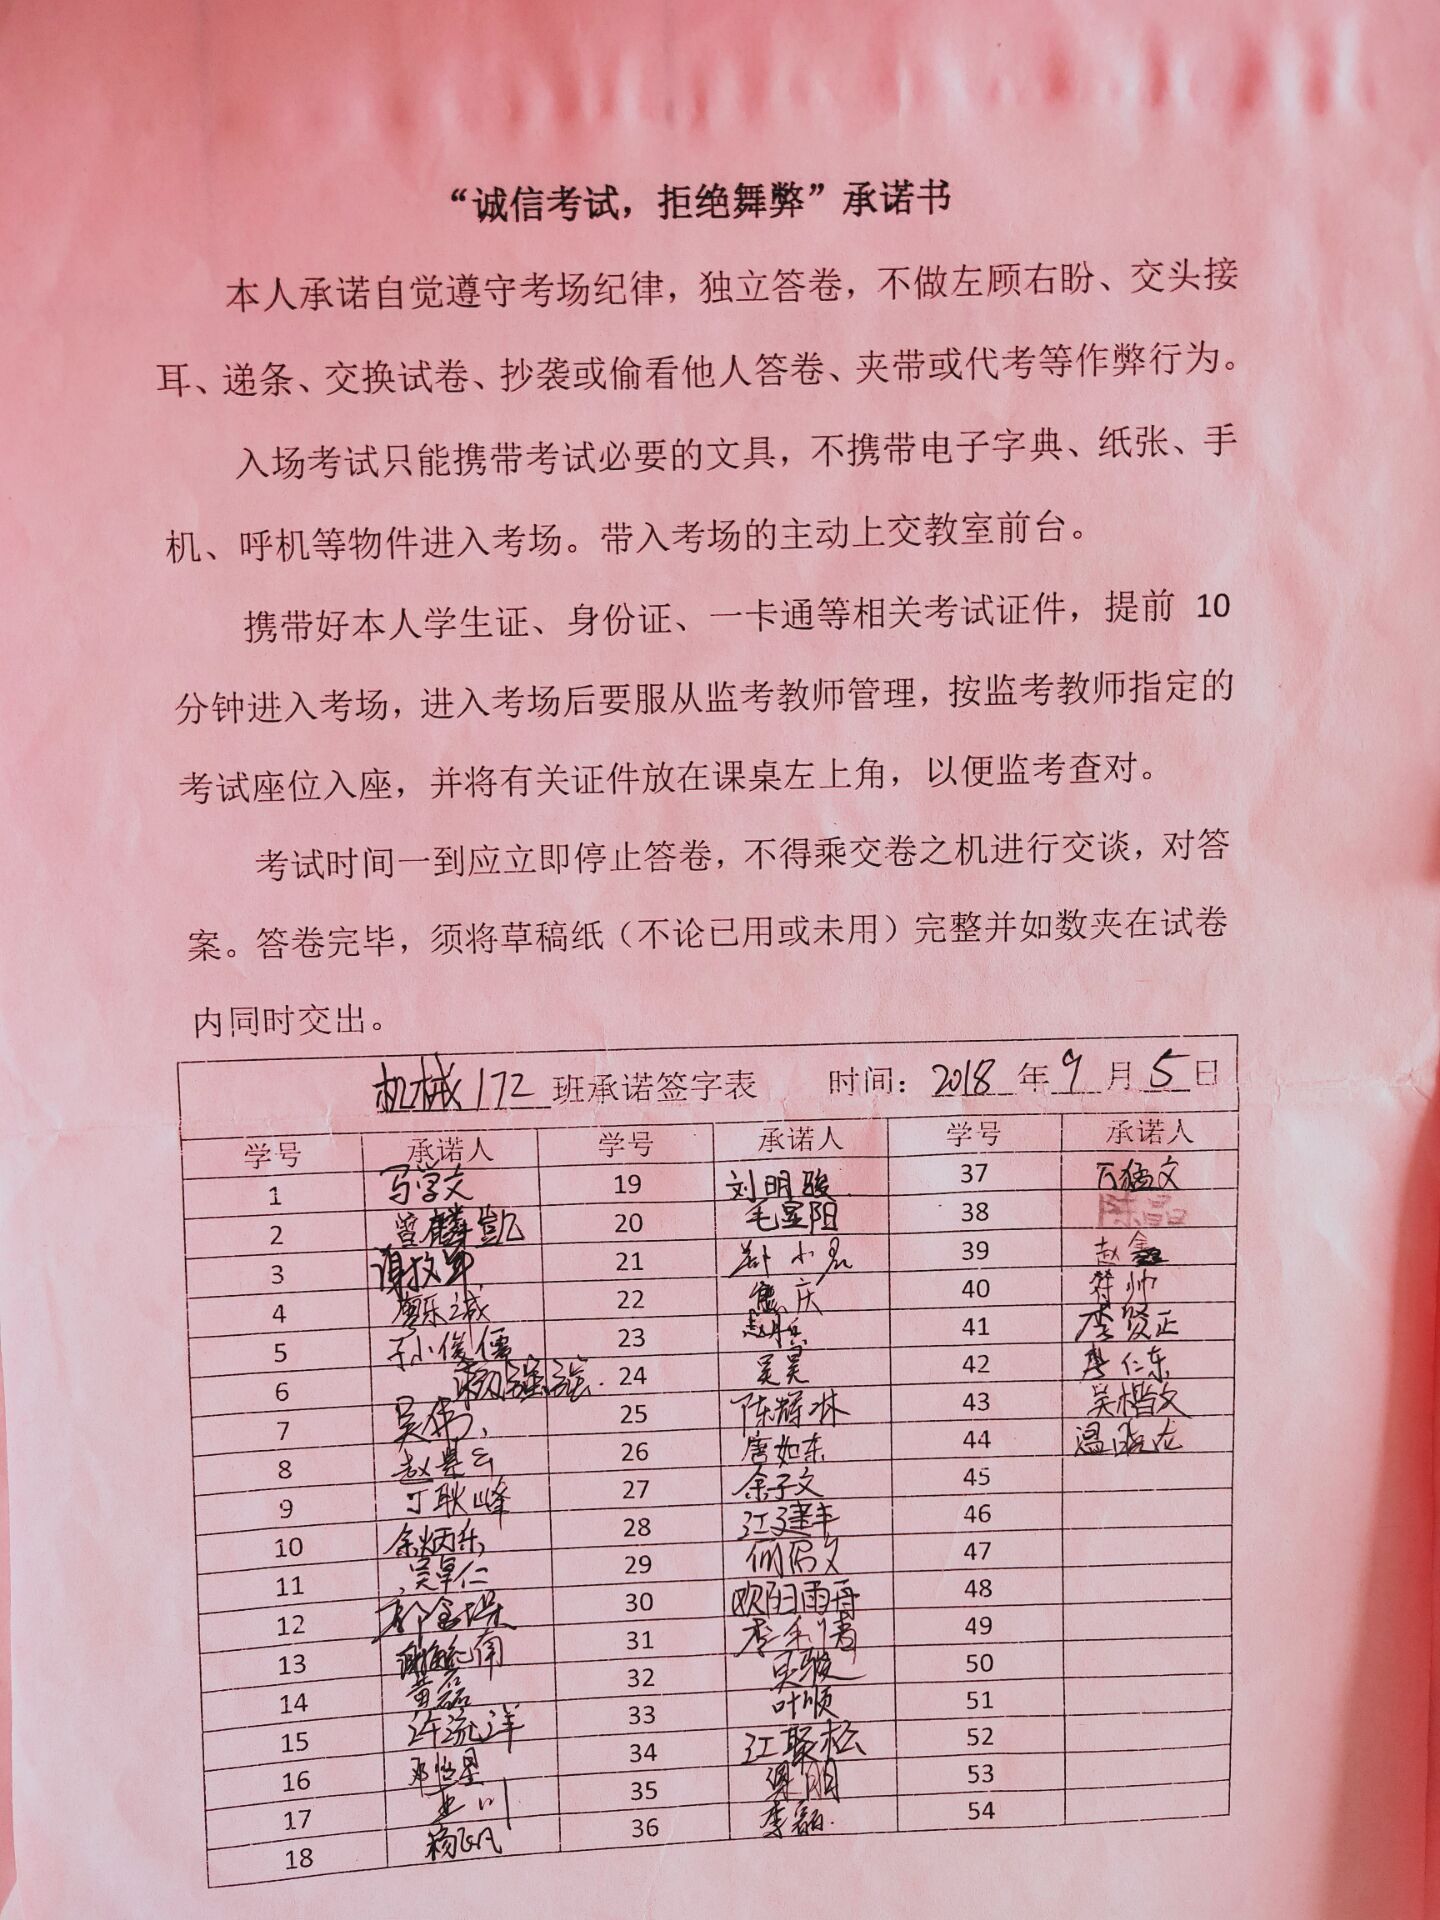 “诚信考试，拒绝舞弊”承诺书
本人承诺自觉遵守考场纪律，独立答卷，不做左顾右盼、交头接
耳、递条、交换试卷、抄袭或偷看他人答卷、夹带或代考等作弊行为。
入场考试只能携带考试必要的文具，不携带电子字典、纸张、手
机、呼机等物件进入考场。带入考场的主动上交教室前台。
携带好本人学生证、身份证、一卡通等相关考试证件，提前 10
分钟进入考场，进入考场后要服从监考教师管理，按监考教师指定的
考试座位入座，并将有关证件放在课桌左上角，以便监考查对。
考试时间一到应立即停止答卷，不得乘交卷之机进行交谈，对答
案。答卷完毕，须将草稿纸（不论已用或未用）完整并如数夹在试卷
内同时交出。
机械172 班承诺签字表 时间：2018 年 9 月 5 日
学号 承诺人 学号 承诺人 学号 承诺人
1 马学文 19 刘明骏 37
2 曾麟凯 20 毛星阳 38 陈晶
3 21 39 赵鑫
4 廖乐诚 22 熊庆 40 符帅
5 23 41 李贤正
6 24 吴昊 42 李仁东
7 吴伟 25 陈辉林 43 吴楷文
8 赵昊云 26 唐如东 44 温晓龙
9 丁耿峰 27 余子文 45
10 余炳乐 28 江建丰 46
11 吴卓仁 29 47
12 30 欧阳雨舟 48
13 31 49
14 黄磊 32 吴骏 50
15 许流洋 33 叶顺 51
16 邓恺星 34 江联松 52
17 35 53
18 杨飞凡 36 李磊 54